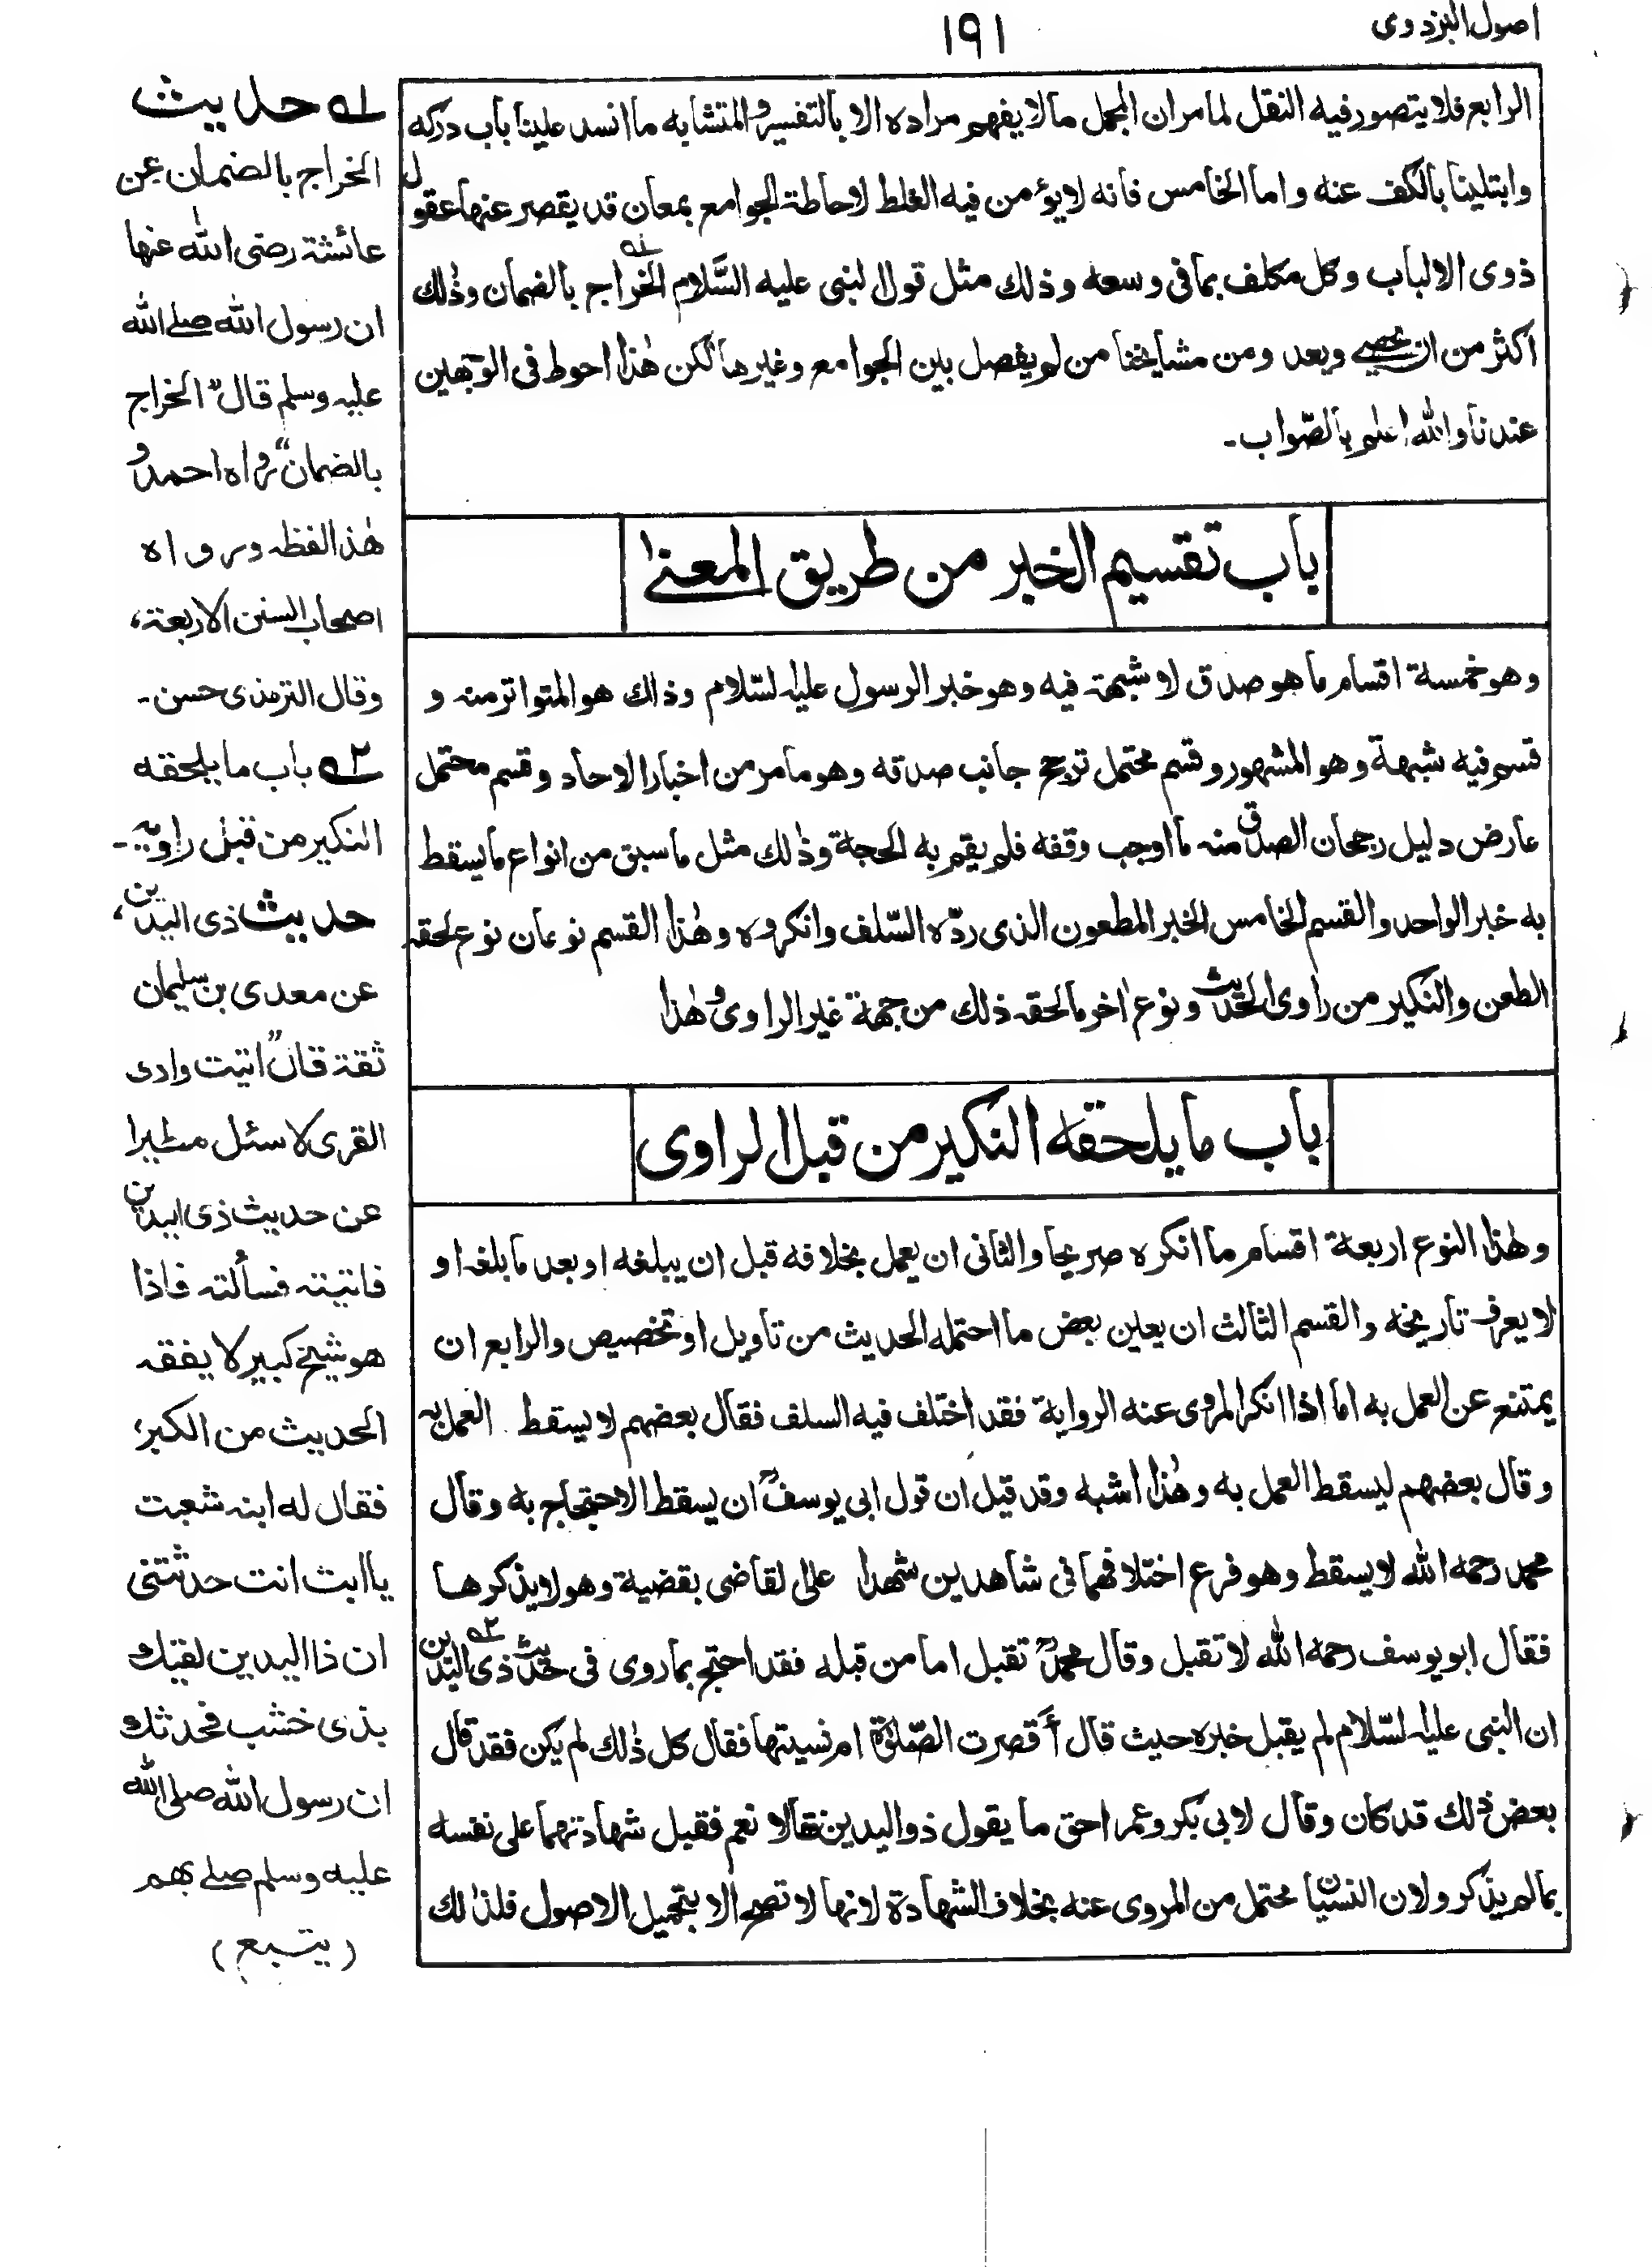 اصول البزدوى
١٩١
الرابع فلا يتصور فيه النقل لما مر ان المجمل ما لا يفهم مراده الا بالتفسير والمتشابه ما انسد علينا باب دركه
وابتلينا بالكف عنه واما الخامس فانه لا يؤمن فيه الغلط لاحاطة الجوامع بمعان قد يقصر عنها عقول
ذوى الالباب وكل مكلف بما فى وسعه وذلك مثل قول النبى عليه السَّلام الخراج بالضمان وذٰلك
اكثر من ان يحصى ويعد ومن مشايخنا من لم يفصل بين الجوامع وغيرها لكن هٰذا احوط فى الوجهين
عندنا والله اعلم بالصّواب۔
باب تقسيم الخبر من طريق المعنىٰ
وهو خمسة اقسام ما هو صدق لا شبهة فيه وهو خبر الرسول عليه السّلام وذالك هو المتواتر منه و
قسم فيه شبهة وهو المشهور وقسم محتمل ترجح جانب صدقه وهو ما مر من اخبار الاحاد وقسم محتمل
عارض دليل رجحان الصدق منه ما اوجب وقفه فلم يقم به الحجة وذٰلك مثل ما سبق من انواع ما يسقط
به خبر الواحد والقسم الخامس الخبر المطعون الذى ردّه السّلف وانكروه وهٰذا القسم نوعان نوع لحقه
الطعن والنكير من راوى الحديث ونوع اٰخر ما لحقه ذلك من جهة غير الراوى وهٰذا
باب ما يلحقه النكير من قبل الراوى
وهٰذا النوع اربعة اقسام ما انكره صريحا والثانى ان يعمل بخلافه قبل ان يبلغه او بعد ما بلغه او
لا يعرف تاريخه والقسم الثالث ان يعين بعض ما احتمله الحديث من تاويل او تخصيص والرابع ان
يمتنع عن العمل به اما اذا انكر المروى عنه الرواية فقد اختلف فيه السلف فقال بعضهم لا يسقط العمل به
وقال بعضهم ليسقط العمل به وهٰذا اشبه وقد قيل ان قول ابى يوسفؒ ان يسقط الاحتجاج به وقال
محمد رحمه الله لا يسقط وهو فرع اختلافهما فى شاهدين شهدا على القاضى بقضية وهو لا يذكرها
فقال ابو يوسف رحمه الله لا تقبل وقال محمدؒ تقبل اما من قبله فقد احتج بما روى فى حديث ٢ه ذى اليدين
ان النبى عليه السّلام لم يقبل خبره حيث قال أقصرت الصّلوٰة ام نسيتها فقال كل ذٰلك لم يكن فقد قال
بعض ذٰلك قد كان وقال لابى بكر وعمر احق ما يقول ذو اليدين فقالا نعم فقبل شهادتهما على نفسه
بما لم يذكر ولان النسيان محتمل من المروى عنه بخلاف الشهادة لانها لا تصح الا بتحميل الاصول فلذٰلك
١ه حديث
الخراج بالضمان عن
عائشة رضى الله عنها
ان رسول الله صلى الله
عليه وسلم قال "الخراج
بالضمان" رواه احمد و
هٰذا لفظه ورواه
اصحاب السنن الاربعة،
وقال الترمذى حسن۔
٢ه باب ما يلحقه
النكير من قبل راويه۔
حديث ذى اليدين،
عن معدى بن سليمان
ثقة قال "اتيت وادى
القرى لاسئل مطيرا
عن حديث ذى اليدين
فاتيته فسألته فاذا
هو شيخ كبير لا يفقه
الحديث من الكبر،
فقال له ابنه شعيث
يا ابت انت حدثتنى
ان ذا اليدين لقيك
بذى خشب فحدثك
ان رسول الله صلى الله
عليه وسلم صلى بهم
(يتبع)